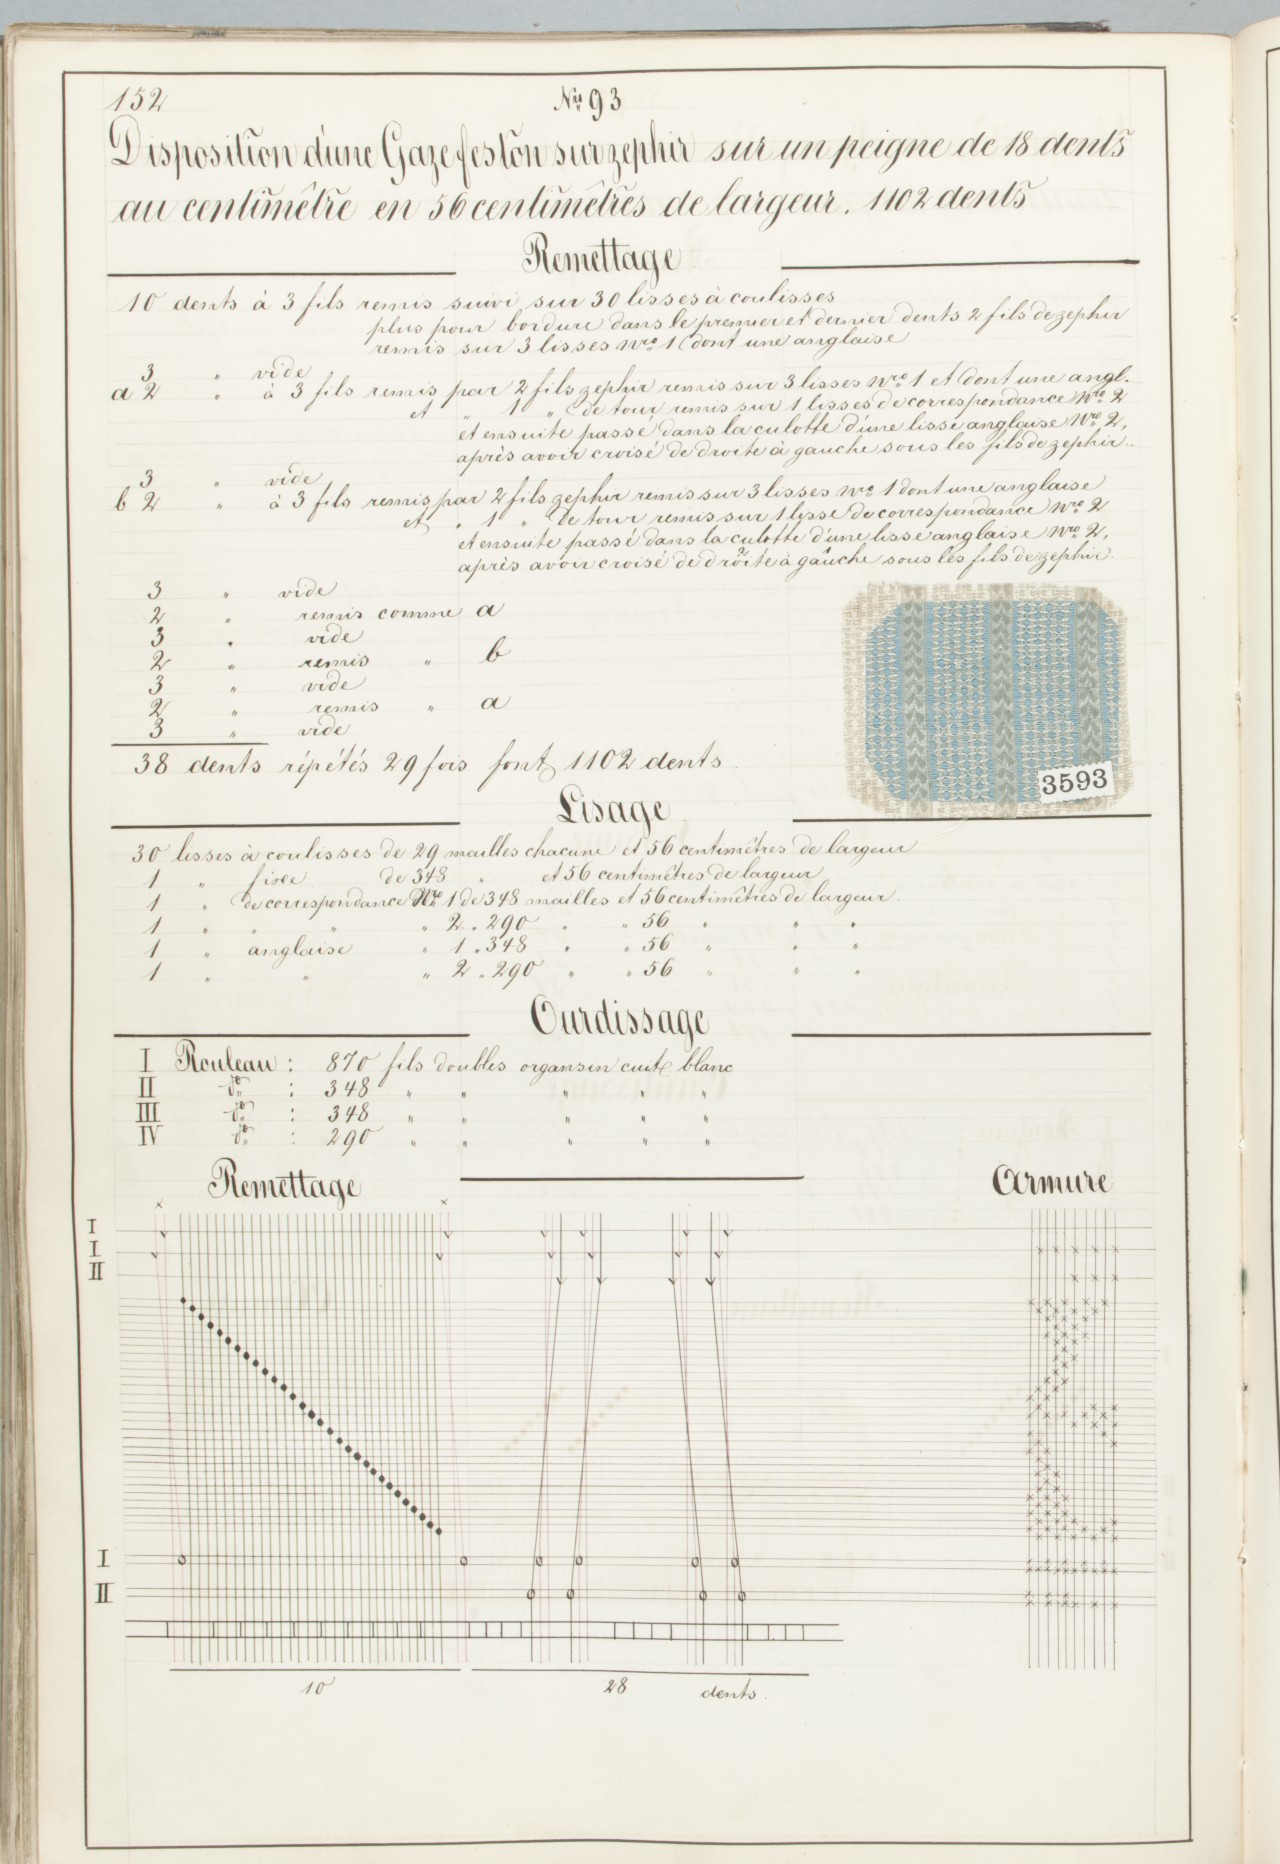 152
Nro 93
Disposition d'une Gaze feston sur zephir sur un peigne de 18 dents
au centimêtre en 56 centimêtres de largeur. 1102 dents
Remettage
10 dents à 3 fils remis suivi sur 30 lisses à coulisses
plus pour bordure dans le premier et dernier dents 2 fils de zephir
remis sur 3 lisses Nro 1 (dont une anglaise
3 " vide
a 2 " à 3 fils remis par 2 fils zephir remis sur 3 lisses Nro 1 et (dont une angl.
et " 1 " (de tour remis sur 1 lisses de correspondance Nro 2
et ensuite passé dans la culotte d'une lisse anglaise Nro 2,
après avoir croisé de droite à gauche sous les fils de zephir.
3 " vide
b 2 " à 3 fils remis par 2 fils zephir remis sur 3 lisses Nro 1 dont une anglaise
et " 1 " de tour remis sur 1 lisse de correspondance Nro 2
et ensuite passé dans la culotte d'une lisse anglaise Nro 2,
après avoir croisé de droite à gauche sous les fils de zephir
3 " vide
2 " remis comme a
3 " vide
2 " remis " b
3 " vide
2 " remis " a
3 " vide
38 dents répétés 29 fois font 1102 dents.
3593
Lisage
30 lisses à coulisses de 29 mailles chacune et 56 centimêtres de largeur
1 " fixe de 348 " et 56 centimêtres de largeur
1 " de correspondance Nro 1 de 348 mailles et 56 centimêtres de largeur.
1 " " " " 2 " 290 " " 56 " " "
1 " anglaise " 1 " 348 " " 56 " " "
1 " " " 2 " 290 " " 56 " " "
Ourdissage
I Rouleau : 870 fils doubles organsin cuit blanc
II do : 348 " " " " "
III do : 348 " " " " "
IV do : 290 " " " " "
Remettage
Armure
I
I
II
I
II
10 28 dents.